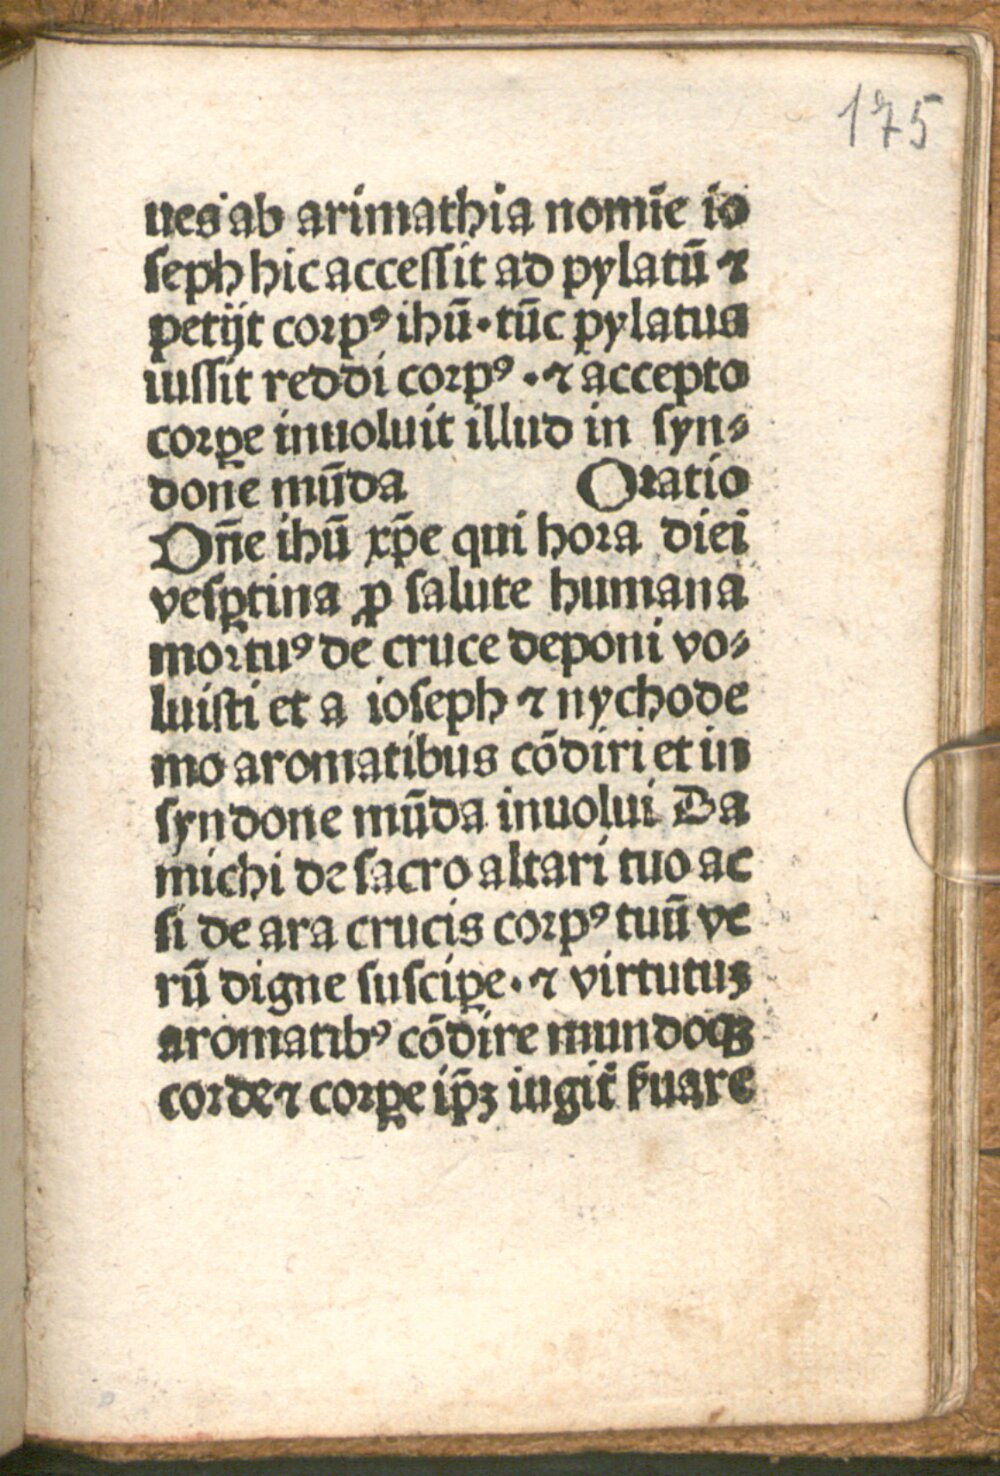 175
ues ab arimathia nomīe io
seph hic accessit ad pylatū ⁊
petijt corpꝰ ihū · tūc pylatus
iussit reddi corpꝰ · ⁊ accepto
corꝑe inuoluit illud in syn⸗
done mūda Oratio
Dn̄e ihū xp̄e qui hora diei
vesꝑtina ꝓ salute humana
mortuꝰ de cruce deponi vo⸗
luisti et a ioseph ⁊ nychode
mo aromatibus cōdiri et in
syndone mūda inuolui Da
michi de sacro altari tuo ac
si de ara crucis corpꝰ tuū ve
rū digne susciꝑe · ⁊ virtutuꝫ
aromatibꝰ cōdire mundoqꝫ
corde ⁊ corꝑe ip̄ꝫ iugit̄ s̄uare